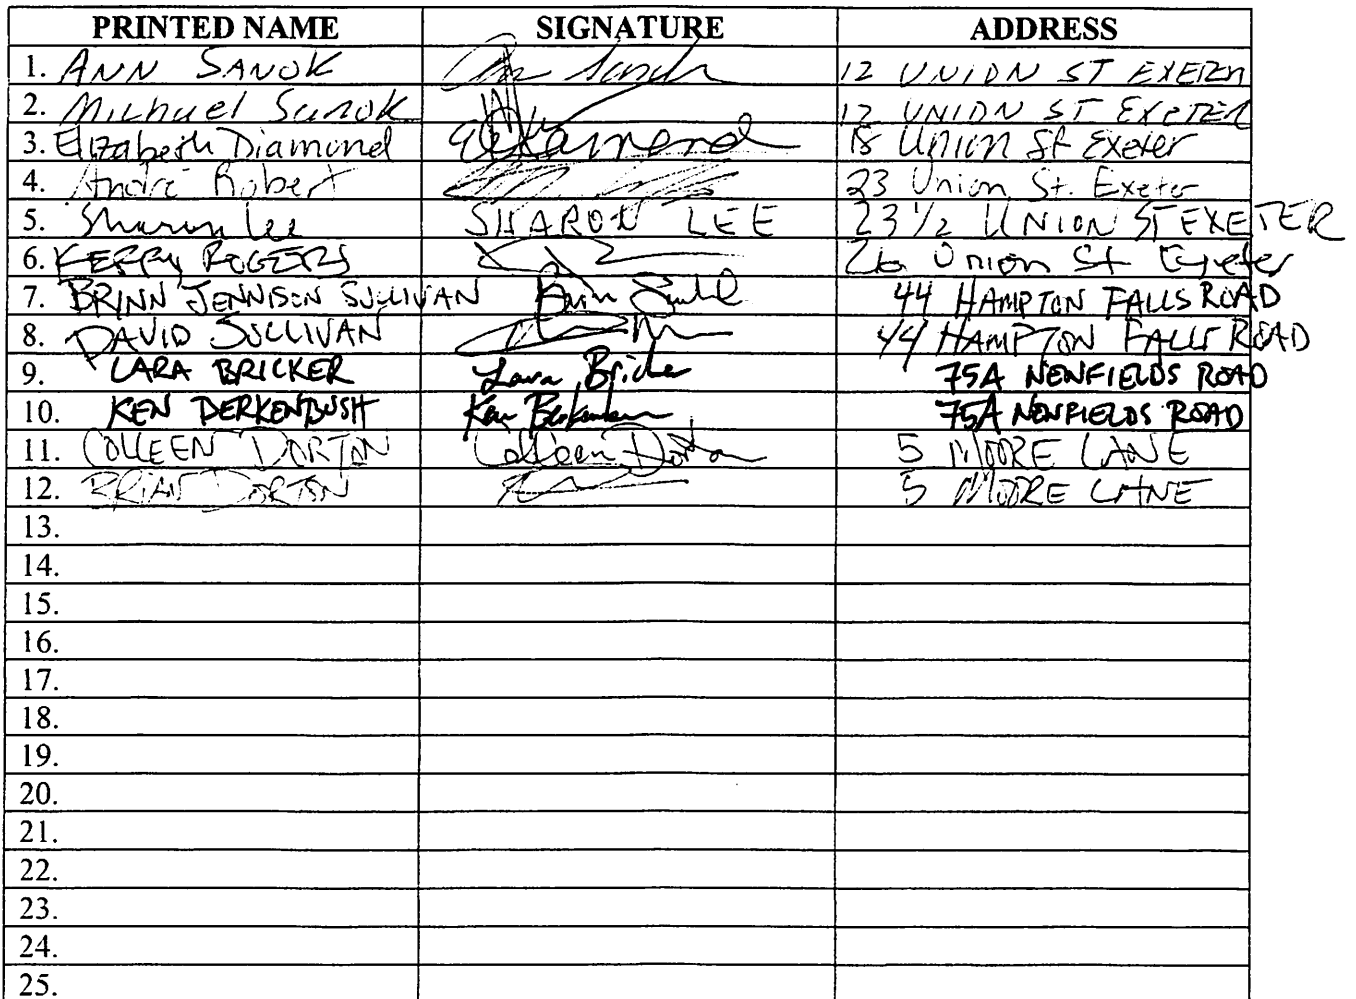 PRINTED NAME SIGNATURE ADDRESS
1. ANN SANOK Ann Sanok 12 UNION ST EXETER
2. Michael Sanok 12 UNION ST EXETER
3. Elizabeth Diamond EDiamond 18 Union St Exeter
4. André Robert 23 Union St. Exeter
5. Sharon Lee SHARON LEE 23 1/2 UNION ST EXETER
6. KERRY ROGERS 26 Union St Exeter
7. BRINN JENNISON SULLIVAN 44 HAMPTON FALLS ROAD
8. DAVID SULLIVAN 44 HAMPTON FALLS ROAD
9. LARA BRICKER Lara Bricker 75A NEWFIELDS ROAD
10. KEN BERKENBUSH Ken Berkenbush 75A NEWFIELDS ROAD
11. COLLEEN DORTON Colleen Dorton 5 MOORE LANE
12. BRIAN DORTON 5 MOORE LANE
13.
14.
15.
16.
17.
18.
19.
20.
21.
22.
23.
24.
25.